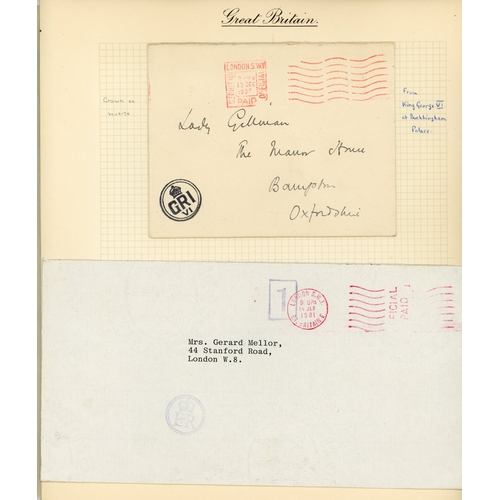 Great Britain.
LONDON. S.W.1
OFFICIAL
PAID
From
King George VI
at Buckingham
Palace.
Crown on
reverse
Lady Gillman
The Manor House
Bampton
Oxfordshire
GRI
VI
1
LONDON S.W.1.
1981
GT. BRITAIN
FICIAL
PAID
Mrs. Gerard Mellor,
44 Stanford Road,
London W.8.
ER